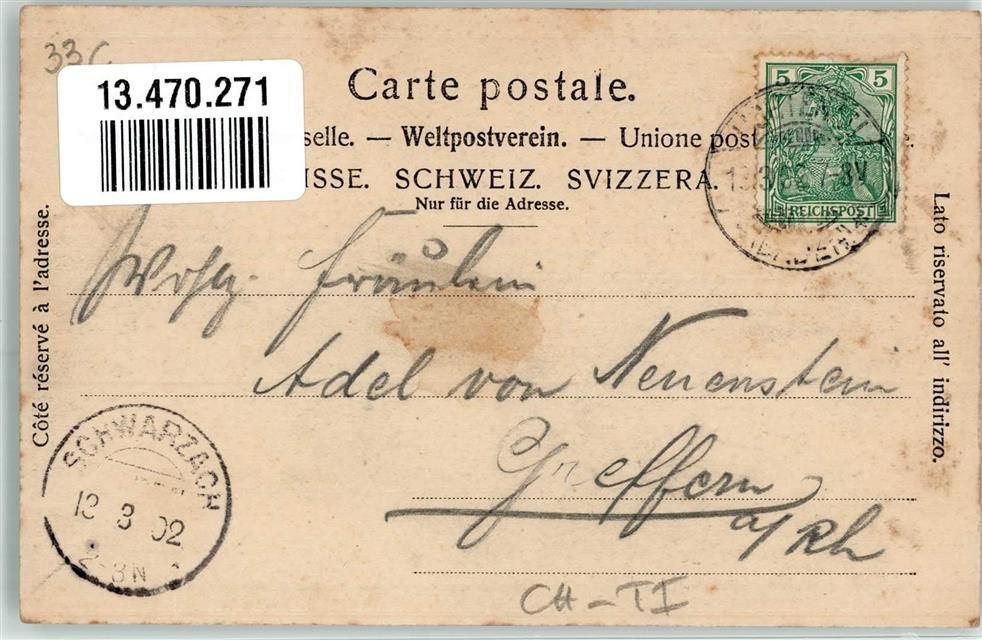 33c
13.470.271
Carte postale.
selle. — Weltpostverein. — Unione post e.
ISSE. SCHWEIZ. SVIZZERA.
Nur für die Adresse.
5 5
REICHSPOST
Côté réservé à l'adresse.
Lato riservato all' indirizzo.
Fräulein
Adel von Neuenstein
Greffern
a/Rh
SCHWARZACH
13 3 02
2-3N
CH-TI